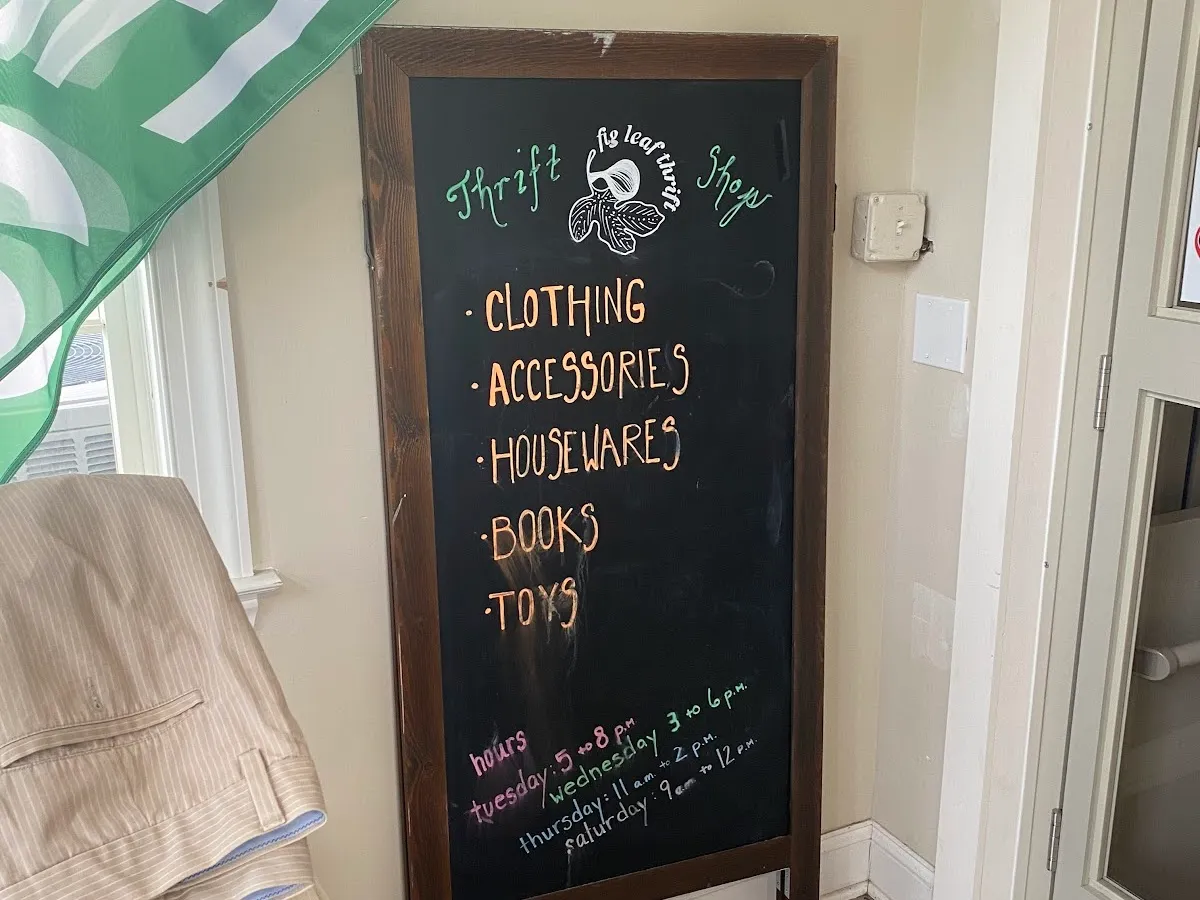 Thrift fig leaf thrift Shop
· CLOTHING
· ACCESSORIES
· HOUSEWARES
· BOOKS
· TOYS
hours
tuesday: 5 to 8 p.m
wednesday 3 to 6 p.m.
thursday: 11 a.m. to 2 p.m.
saturday: 9 am to 12 p.m.